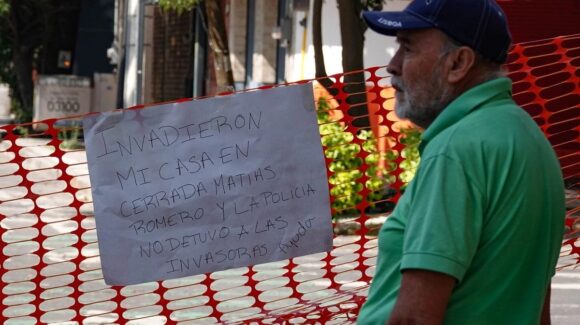 LISBOA
INVADIERON
MI CASA EN
CERRADA MATIAS
ROMERO Y LA POLICIA
NO DETUVO A LAS
INVASORAS. Ayuda!